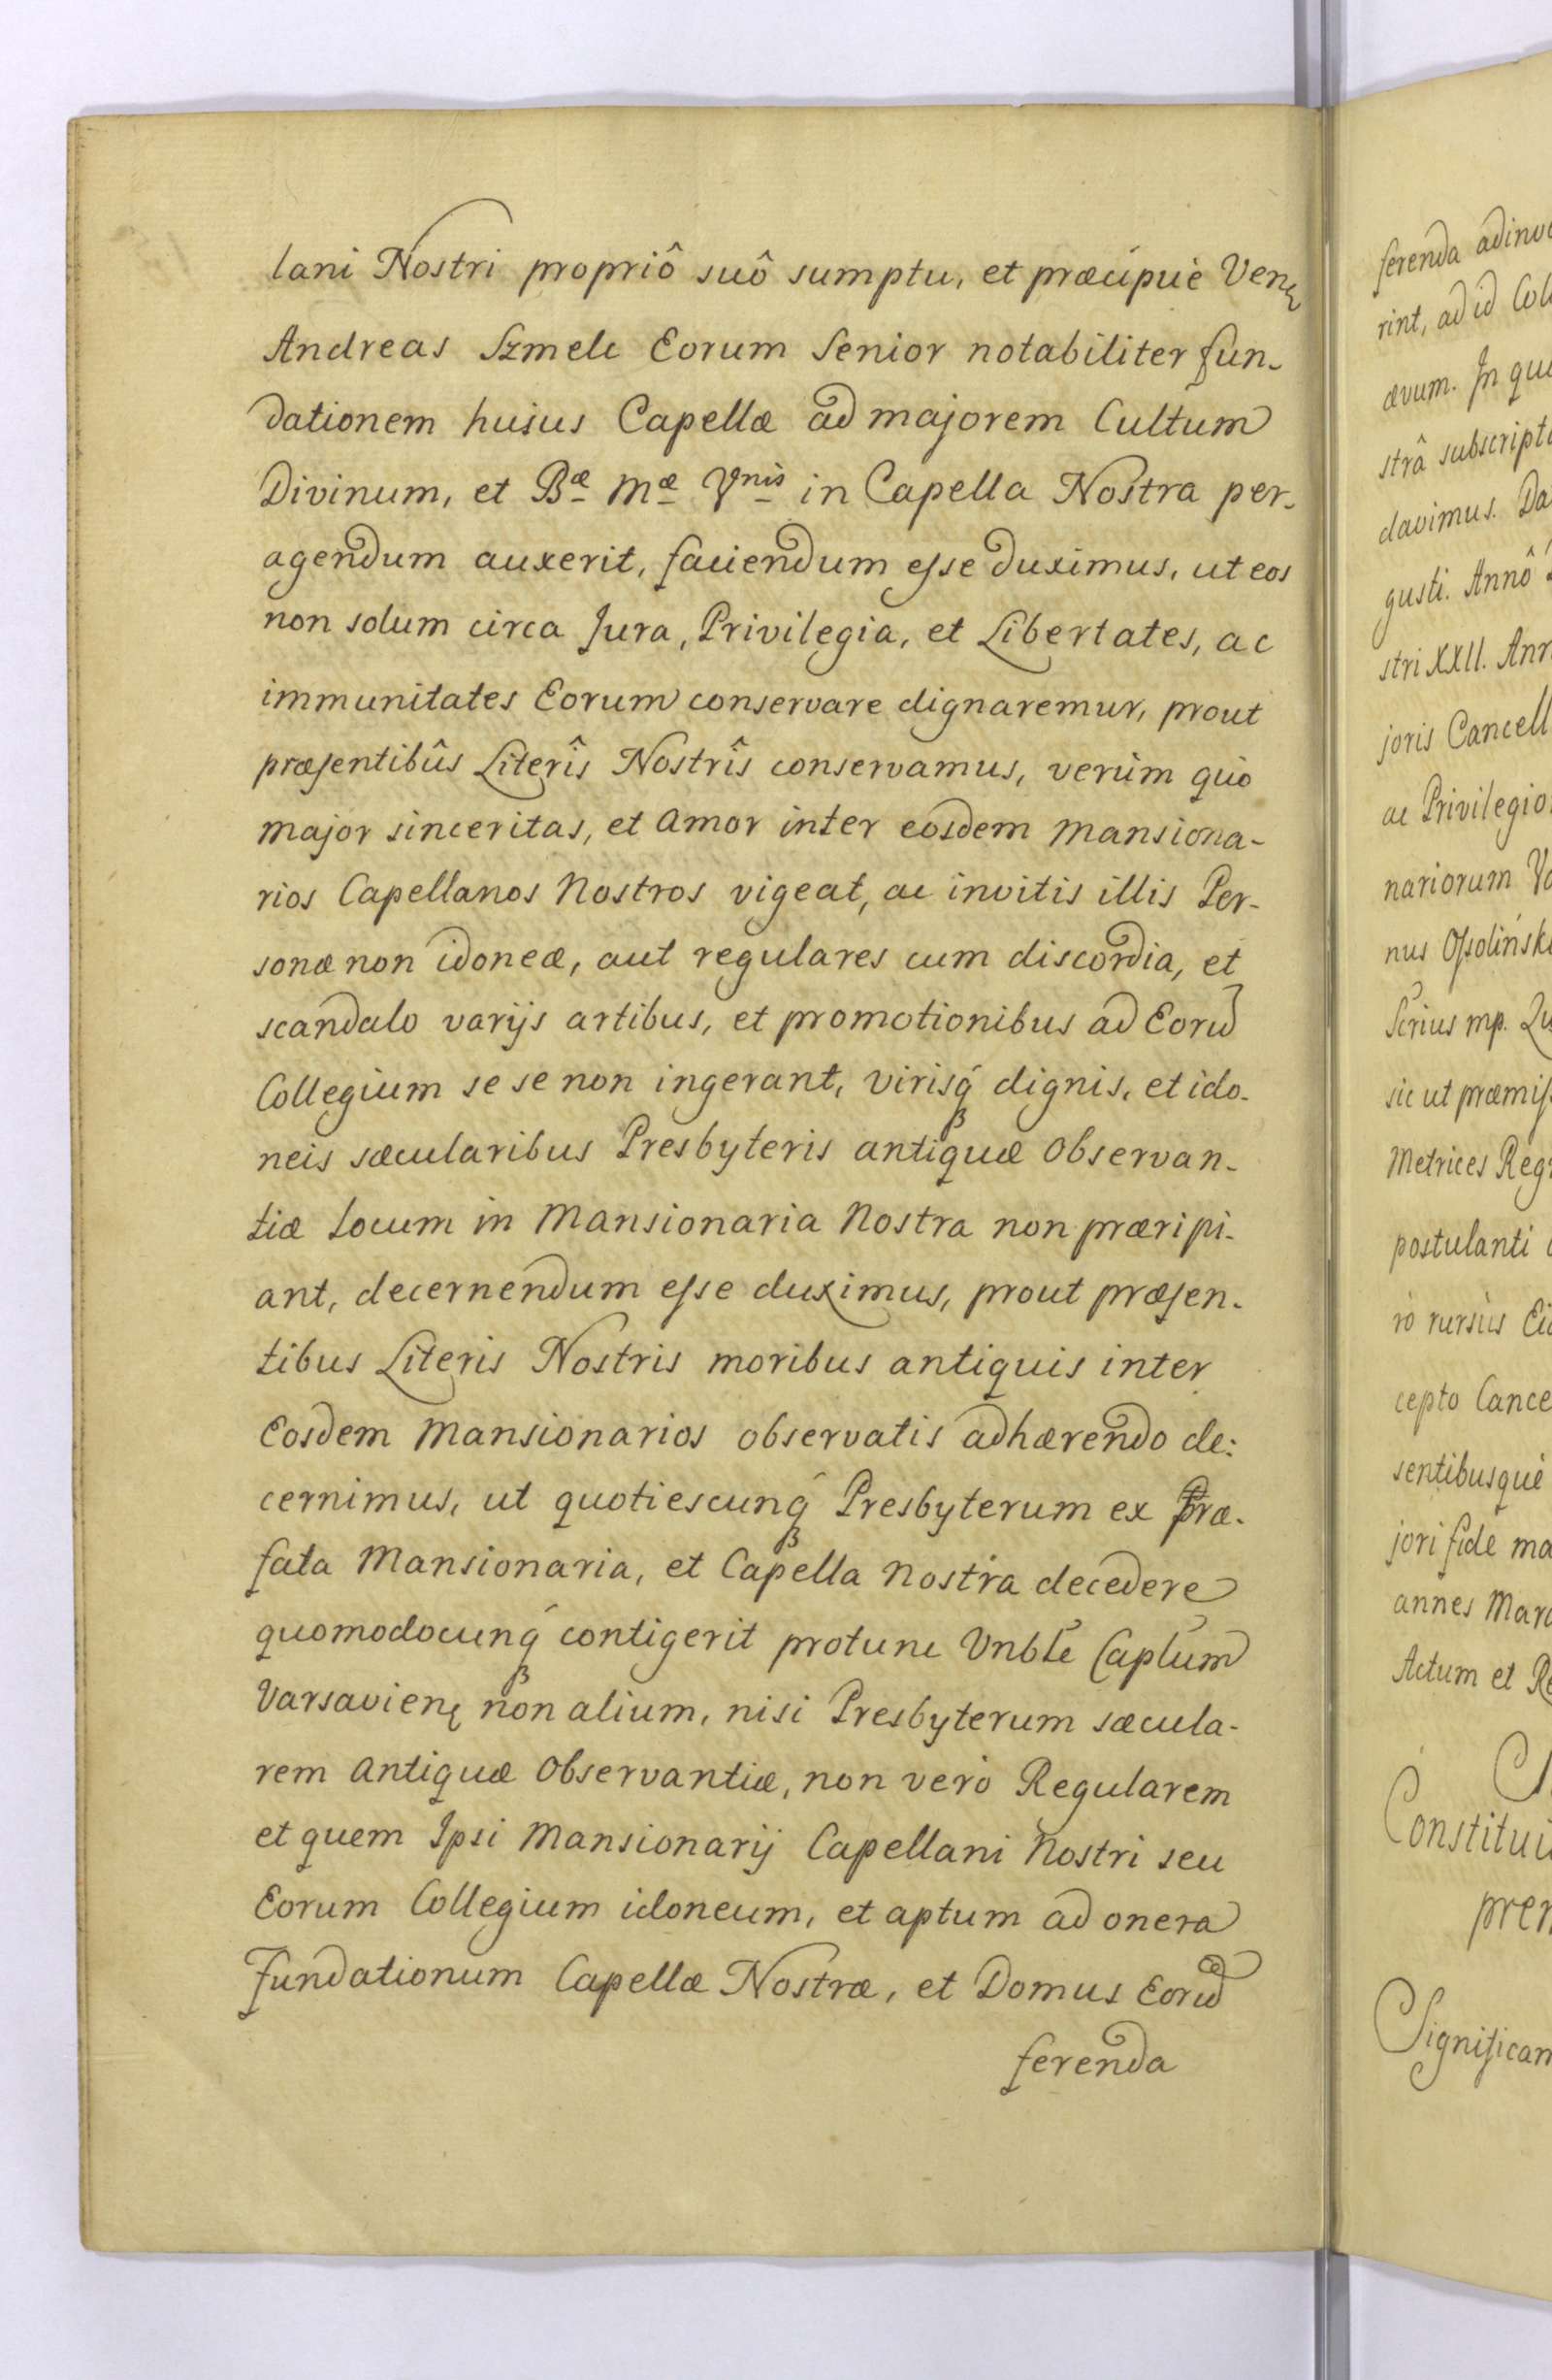 lani Nostri propriô suô sumptu, et præcipuè Venę
Andreas Szmelc Eorum Senior notabiliter fun-
dationem huius Capellæ ad majorem Cultum
Divinum, et Bæ Mæ Vnis in Capella Nostra per-
agendum auxerit, faciendum esse duximus, ut eos
non solum circa Jura, Privilegia, et Libertates, ac
immunitates Eorum conservare dignaremur, prout
præsentibûs Literîs Nostrîs conservamus, verùm quò
major sinceritas, et Amor inter eosdem Mansiona-
rios Capellanos Nostros vigeat, ac invitis illis Per-
sonæ non idoneæ, aut regulares cum discordia, et
scandalo varijs artibus, et promotionibus ad Eorũ
Collegium se se non ingerant, virisq́ dignis, et ido-
neis sæcularibus Presbyteris antiquæ Observan-
tiæ Locum in Mansionaria Nostra non præripi-
ant, decernendum esse duximus, prout præsen-
tibus Literis Nostris moribus antiquis inter
Eosdem Mansionarios observatis adhærendo de:
cernimus, ut quotiescunq́ Presbyterum ex Præ-
fata Mansionaria, et Capella Nostra decedere
quomodocunq́ contigerit protunc Vnble Caplum
Varsavienę non alium, nisi Presbyterum sæcula-
rem Antiquæ Observantiæ, non verò Regularem
et quem Ipsi Mansionarij Capellani Nostri seu
Eorum Collegium idoneum, et aptum ad onera
Fundationum Capellæ Nostræ, et Domus Eorũ
ferenda
ferenda adinve
rint, ad id Coll
ævum. In quo
strâ subscript
davimus. Da
gusti. Annô
stri XXII. Ann
joris Cancell
ac Privilegio
nariorum Va
nus Ossolinski
Scrius mp.
sic ut præmiss
Metrices Reg
postulanti
rò rursùs Ei
cepto Cance
sentibusquè
jori fide ma
annes Mar
Actum et Re
Constitui
prer
Significam